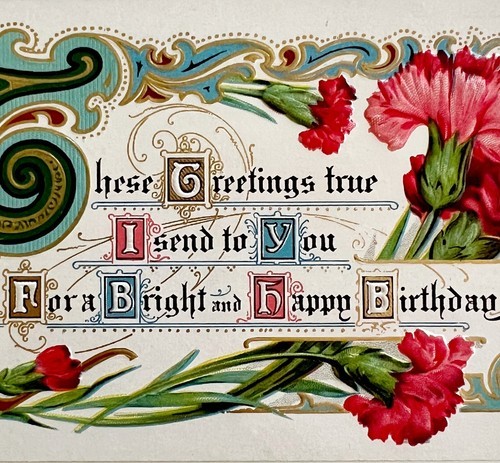 These Greetings true
I send to You
For a Bright and Happy Birthday